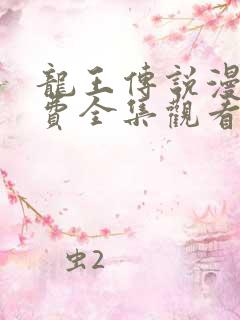 龍王傳說漫
費全集觀看
虫2